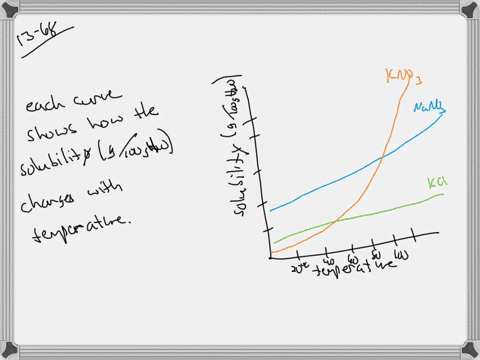 13-68
each curve
shows how the
solubility (g/100gH2O)
changes with
temperature.
solubility (g/100gH2O)
KNO3
NaNO3
KCl
20 40 60 80 100
temperature